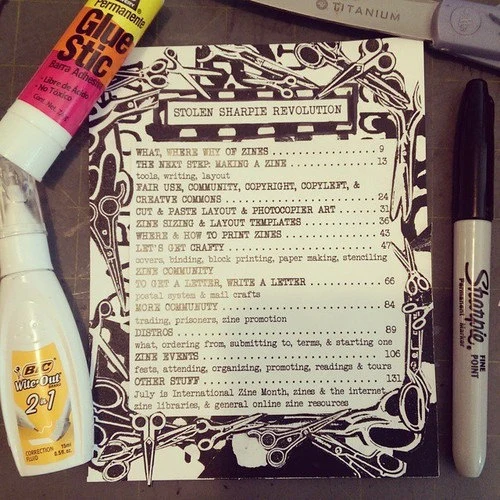 Permanente
Glue
Stic
Barra Adhesiva
· Libre de Ácido
· No Tóxico
TITANIUM
STOLEN SHARPIE REVOLUTION
WHAT, WHERE WHY OF ZINES . . . . . . . . . . . . . . . 9
THE NEXT STEP: MAKING A ZINE . . . . . . . . . . . . 13
tools, writing, layout
FAIR USE, COMMUNITY, COPYRIGHT, COPYLEFT, &
CREATIVE COMMONS . . . . . . . . . . . . . . . . . . . 24
CUT & PASTE LAYOUT & PHOTOCOPIER ART . . . . 31
ZINE SIZING & LAYOUT TEMPLATES . . . . . . . . . . 36
WHERE & HOW TO PRINT ZINES . . . . . . . . . . . . . 43
LET'S GET CRAFTY . . . . . . . . . . . . . . . . . . . . 47
covers, binding, block printing, paper making, stenciling
ZINE COMMUNITY
TO GET A LETTER, WRITE A LETTER . . . . . . . . . 66
postal system & mail crafts
MORE COMMUNUTY . . . . . . . . . . . . . . . . . . . . 84
trading, prisoners, zine promotion
DISTROS . . . . . . . . . . . . . . . . . . . . . . . . . . 89
what, ordering from, submitting to, terms, & starting one
ZINE EVENTS . . . . . . . . . . . . . . . . . . . . . . . 106
fests, attending, organizing, promoting, readings & tours
OTHER STUFF . . . . . . . . . . . . . . . . . . . . . . . 131
July is International Zine Month, zines & the internet
zine libraries, & general online zine resources
BIC
Wite-Out
2 in 1
CORRECTION
FLUID
15ml
0.5fl.oz.
Sharpie
FINE
POINT
Permanent Marker